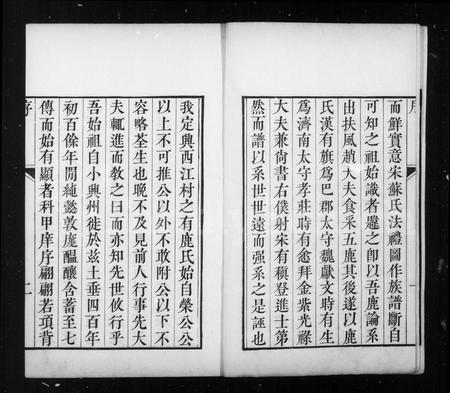 序
而鮮實意宋蘇氏法禮圖作族譜斷自
可知之祖始識者韙之卽以吾鹿論系
出扶風趙大夫食采五鹿其後遂以鹿
氏漢有旗爲巴郡太守魏獻文時有生
爲濟南太守孝莊時有悆拜金紫光祿
大夫兼尙書右僕射宋有積登進士第
然而譜以系世世遠而强系之是誣也
一
我定興西江村之有鹿氏始自榮公公
以上不可推公以外不敢附公以下不
容略荃生也晚不及見前人行事先大
夫輒進而敎之曰而亦知先世攸行乎
吾始祖自小興州徙於茲土垂四百年
初百餘年閒純懿敦龐醞釀含蓄至七
傳而始有顯者科甲庠序翩翩若項背
序
二